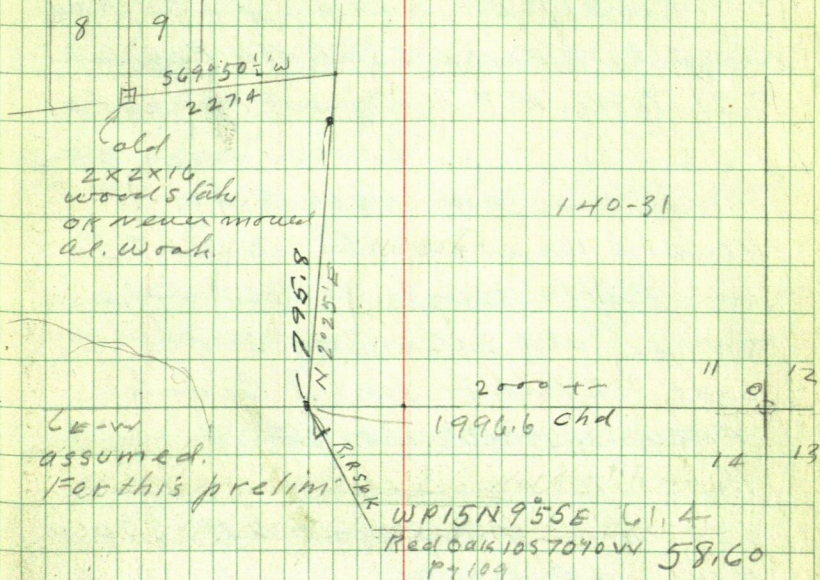 8 9
S69°50½'W
227.4
old
2x2x16
wood stake
OK never moved
al. Woak.
140-31
795.8
N 2°25'E
2000 +-
1996.6 Chd
11 12
14 13
E-W
assumed.
For this prelim.
R.R.SPK
WP15N95°5E 61.4
Red Oak 10S7090W 58.60
Pg 109